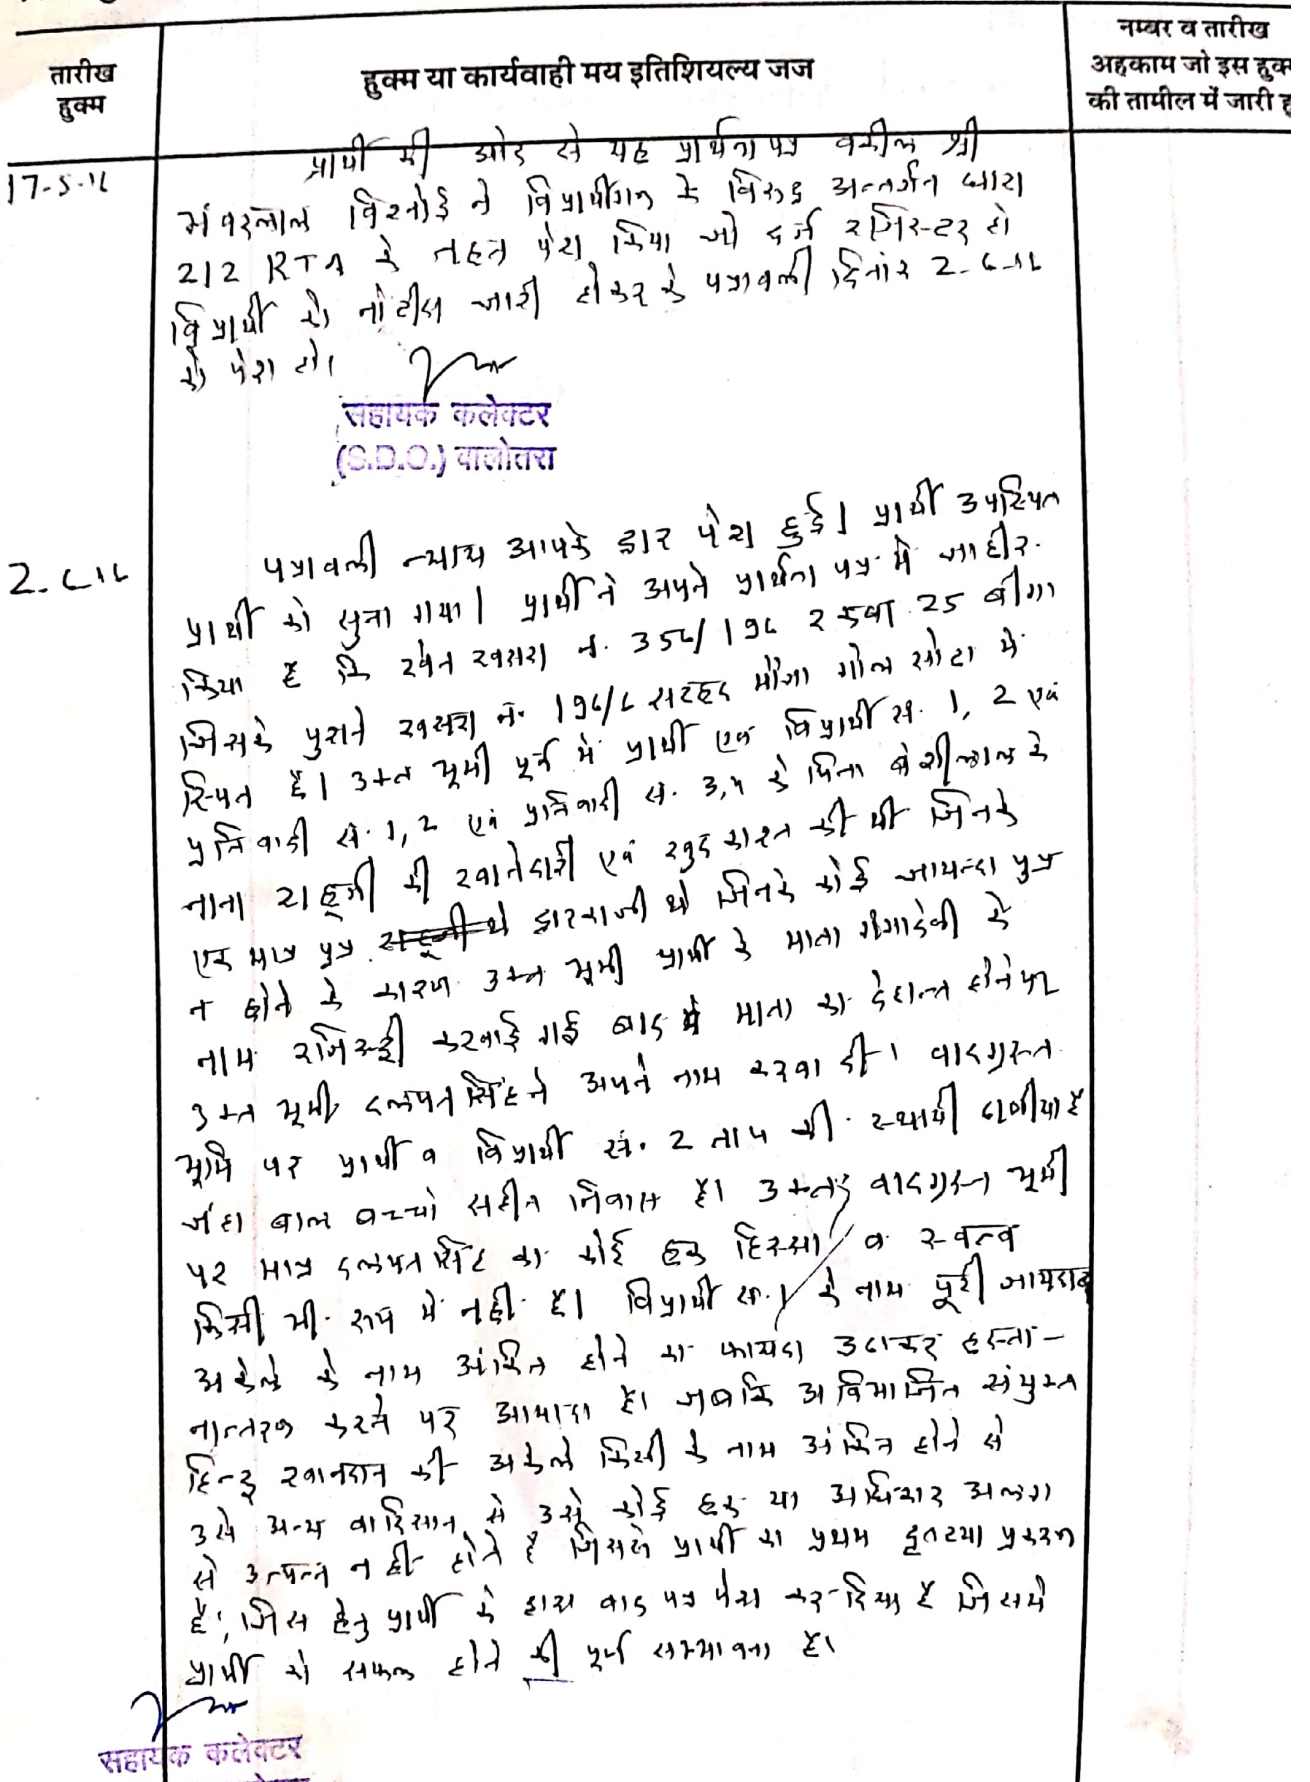 तारीख
हुक्म
हुक्म या कार्यवाही मय इतिशियल्य जज
नम्बर व तारीख
अहकाम जो इस हुक्म
की तामील में जारी हु
17-5-16
प्रार्थी की ओर से यह प्रार्थना पत्र वकील श्री
भंवरलाल विश्नोई ने विप्रार्थीगन के विरुद्ध अन्तर्गत धारा
212 RTA के तहत पेश किया जो दर्ज रजिस्टर हो
विप्रार्थी को नोटीस जारी होकर के पत्रावली दिनांक 2-6-16
को पेश हो।
सहायक कलेक्टर
(S.D.O.) बालोतरा
2-6-16
पत्रावली न्याय आपके द्वार पेश हुई। प्रार्थी उपस्थित
प्रार्थी को सुना गया। प्रार्थी ने अपने प्रार्थना पत्र में जाहीर
किया है कि खेत खसरा नं. 356/196 रकबा 25 बीगा
जिसके पुराने खसरा नं. 196/6 सरहद मौजा गोल सोढा में
स्थित है। उक्त भूमी पूर्व में प्रार्थी एवं विप्रार्थी सं. 1, 2 एवं
प्रतिवादी सं. 1, 2 एवं प्रतिवादी सं. 3,4 के पिता बंशीलाल के
नाना राहूजी की खातेदारी एवं खुद काश्त की थी जिनके
एक मात्र पुत्र थे जिनके कोई जायन्दा पुत्र
न होने के कारण उक्त भूमी प्रार्थी के माता गंगादेवी के
नाम रजिस्ट्री करवाई गई बाद में माता का देहान्त होने पर
उक्त भूमी दलपतसिंह ने अपने नाम करवा दी। वादग्रस्त
भूमि पर प्रार्थी व विप्रार्थी सं. 2 ता 4 की स्थायी ढाणीया है
जंहा बाल बच्चो सहीत निवास है। उक्त वादग्रस्त भूमी
पर मात्र दलपतसिंह का कोई हक हिस्सा व स्वत्व
किसी भी रूप में नही है। विप्रार्थी सं. 1 के नाम पूरी जायदाद
अकेले के नाम अंकित होने का फायदा उठाकर हस्ता-
न्तरण करने पर आमादा है। जबकि अविभाजित संयुक्त
हिन्दू खानदान की अकेले किसी के नाम अंकित होने से
उसे अन्य वारिसान से उसे कोई हक या अधिकार अलग
से उत्पन्न नही होते है जिससे प्रार्थी का प्रथम दृष्टया प्रकरण
है, जिस हेतु प्रार्थी के द्वारा वाद पत्र पेश कर दिया है जिसमे
प्रार्थी को सफल होने की पूर्ण सम्भावना है।
सहायक कलेक्टर